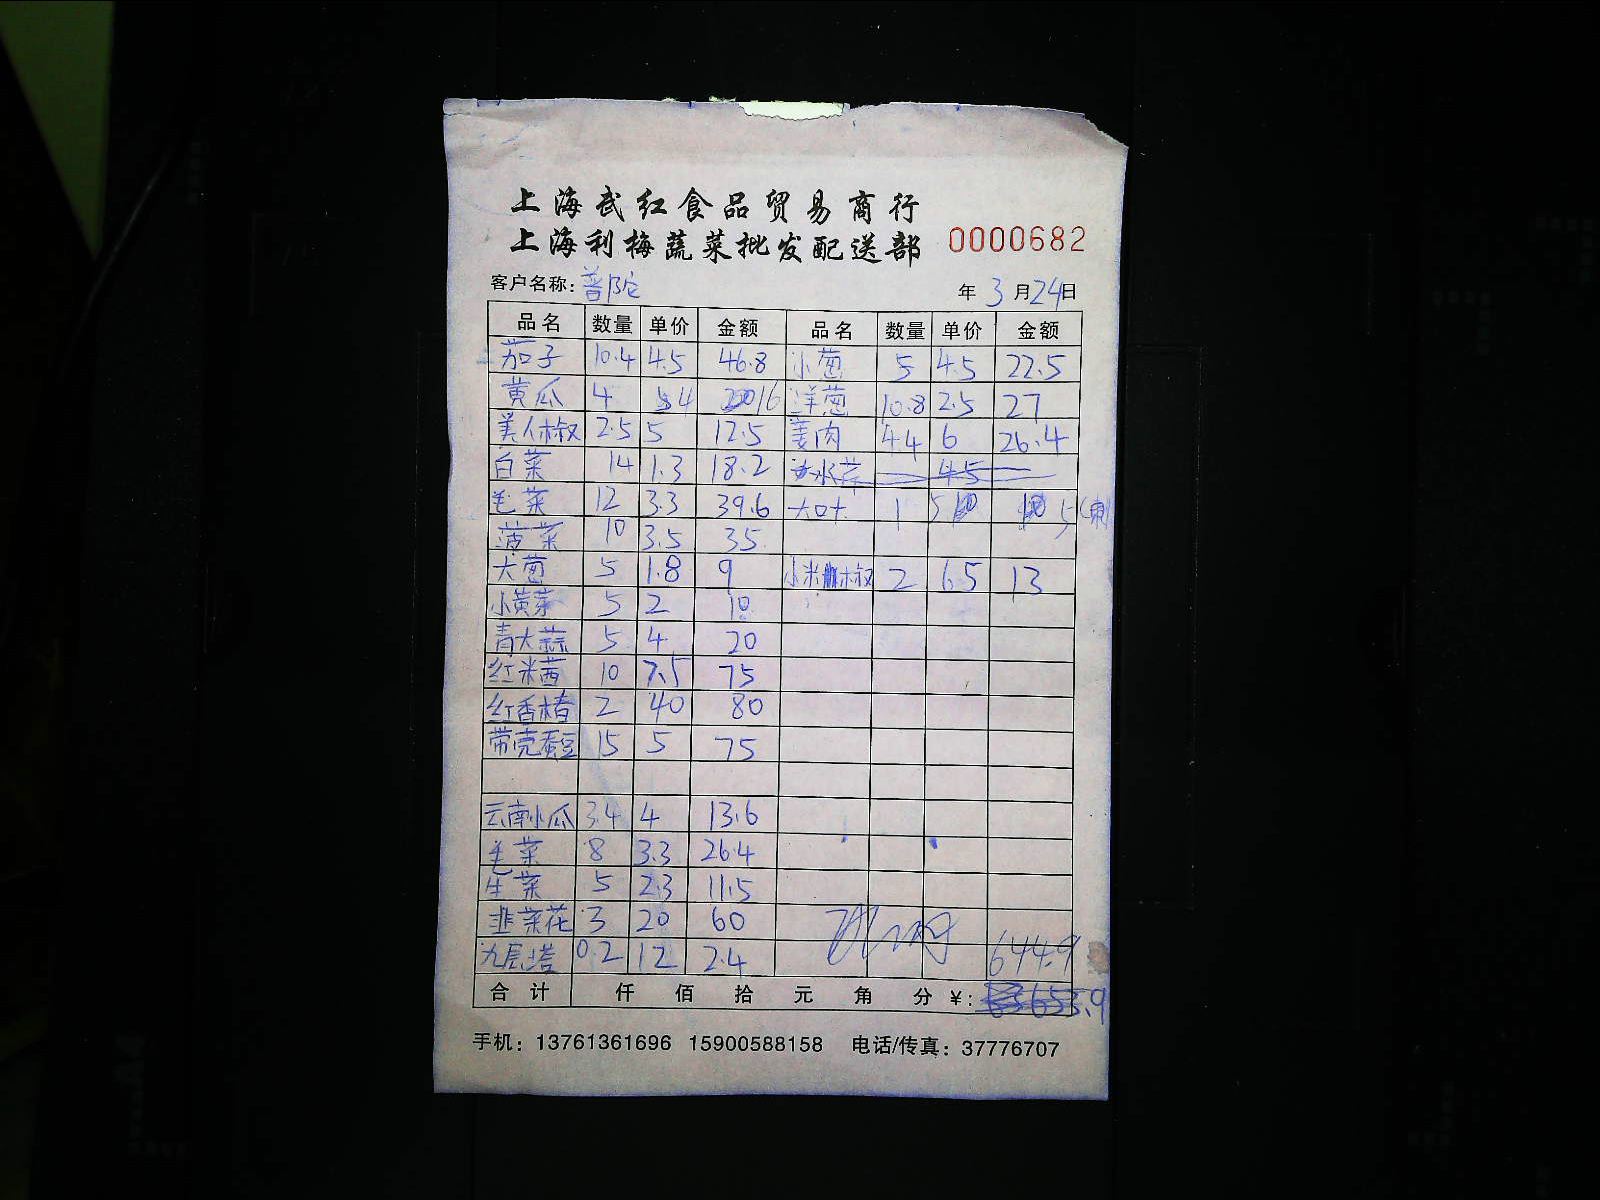 上海武红食品贸易商行
上海利梅蔬菜批发配送部 0000682
客户名称：普陀 年 3 月 24 日
品名 数量 单价 金额 品名 数量 单价 金额
茄子 10.4 4.5 46.8 小葱 5 4.5 22.5
黄瓜 4 4 16 洋葱 10.8 2.5 27
美人椒 2.5 5 12.5 姜肉 4.4 6 26.4
白菜 14 1.3 18.2 4.5
毛菜 12 3.3 39.6 大叶 1 5 5
菠菜 10 3.5 35
大葱 5 1.8 9 小米椒 2 6.5 13
小黄芽 5 2 10
青大蒜 5 4 20
红米茜 10 7.5 75
红香椿 2 40 80
带壳蚕豆 15 5 75
云南小瓜 3.4 4 13.6
毛菜 8 3.3 26.4
生菜 5 2.3 11.5
韭菜花 3 20 60
九层塔 0.2 12 2.4 644.9
合计 仟 佰 拾 元 角 分 ¥： 653.9
手机：13761361696 15900588158 电话/传真：37776707